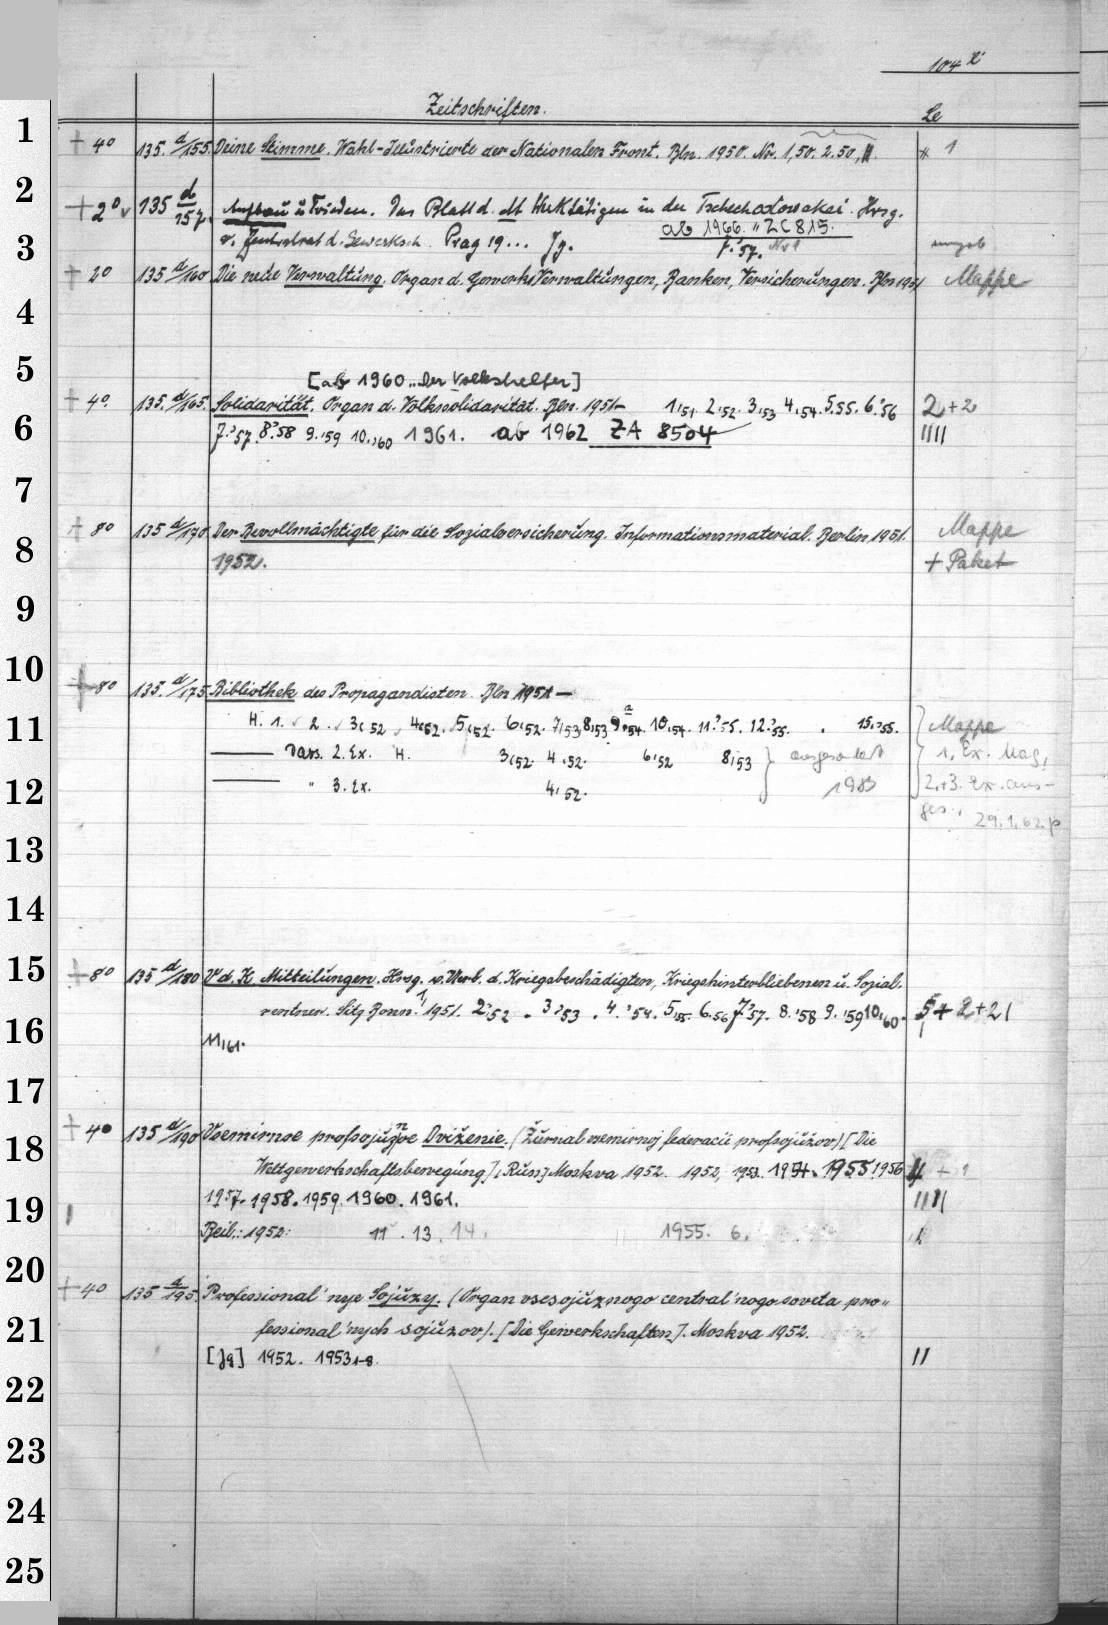 104
Zeitschriften.
Le
1 + 4° 135. d/155. Deine Stimme. Wahl-Illustrierte der Nationalen Front. Bln. 1950. Nr. 1,50. 2.50, * 1
2 + 2° 135 d/157. Aufbau u. Frieden. Das Blatt d. dt Werktätigen in der Tschechoslowakei. Hrsg.
ab 1966 " ZC 815.
3 v. Zentralrat d. Gewerksch. Prag 19... Jg. 7.'57. Nr 1 ungeb
+ 2° 135 d/160 Die neue Verwaltung. Organ d. Gewerks Verwaltungen, Banken, Versicherungen. Bln 1951 Mappe
4
5
[ab 1960 „Der Volkshelfer]
+ 4°. 135. d/165. Solidarität. Organ d. Volkssolidarität. Bln. 1951- 1,51 2,52. 3,53 4,54. 5,55. 6.'56 2 + 2
6 7.'57. 8.'58 9.'59 10.,60 1961. ab 1962 ZA 8504 ||||
7
+ 8° 135 d/170. Der Bevollmächtigte für die Sozialversicherung. Informationsmaterial. Berlin 1951. Mappe
8 1952. + Paket
9
10
+ 8° 135. d/175 Bibliothek des Propagandisten. Bln 1951 —
11 H. 1. 2. 3,52 4,52. 5,52. 6,52. 7,53 8,53 9,54. 10,54. 11.'55. 12.'55. 15.'55. Mappe
— dass. 2. Ex. H. 3,52. 4,52. 6,52 8,53 } ausgesondert 1. Ex. Mag.
12 — " 3. Ex. 4,52. 1983 2.+3. Ex. aus-
ges. 29.1.62.
13
14
15 + 8° 135 d/180 V.d.K Mitteilungen. Hrsg. v. Verb. d. Kriegsbeschädigten, Kriegshinterbliebenen u. Sozial.
rentner. Sitz Bonn. 1, 1951. 2.'52. 3.'53. 4.'54. 5,55. 6.56 7.'57. 8.'58 9.'59 10,60. 5 + 2 + 2 |
16 11,61.
17
+ 4° 135 d/190 Vsemirnoe profsojuznoe Dviženie. (Žurnal vsemirnoj federacii profsojuzov) [Die
18 Weltgewerkschaftsbewegung]. [Russ.] Moskva 1952. 1952, 1953. 1954. 1955. 1956 4 + 1
19 1957. 1958. 1959. 1960. 1961. ||||
Beil.: 1952: 11. 13. 14. 1955. 6.
20
+ 4° 135 d/195. Professional'nye Sojuzy. (Organ vsesojuznogo central'nogo soveta pro„
21 fessional'nych sojuzov). [Die Gewerkschaften]. Moskva 1952.
[Jg] 1952. 1953 1-8. ||
22
23
24
25